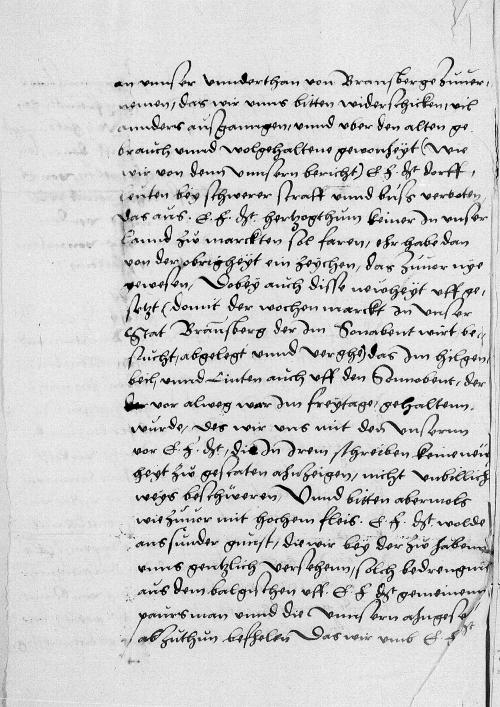 an vnnser vnnderthan von Bransberge zuuer-
nemen, das wir vnns bitten widerschicken, vil
annders aus ganngen, vnnd vber den alten ge-
brauch vnnd wolgehaltene gewonheyt (Wie
wir von denn vnnsern bericht) E f dt dorff
leuten bey schwerer straff vnnd buss verboten
das aus E. f. dt. hertzogthum keiner In vnser
Lannd zw marckten sol faren, ehr habe dan
von der obrigheyt ein zeychen, das zuuer nye
gewesen, Dobey auch disse newheyt vff ge-
setzt (domit der wochen marckt In vnser
Stat Brannsberg der Im Sonabent wirt be-
sucht, abgelegt vnnd verghe) das Im hilgen-
beil vnnd Linten auch vff den Sonnobent, der
vor alweg war Im freytage, gehaltenn
wurde, des wir vns mit den vnsernn
vor E. f. dt, die In Irem schreiben keine new
heyt zw gestaten ahnzeigen, nicht vnbillich
weys beschweren, Vnnd bitten abermols
wie zuuor mit hochem fleis. E. f. dt wolde
aus sunder gunst, die wir bey der zw haben
vnns gentzlich versehenn, solch bedrengnus
aus dem balgischen vff. E. f dt gemeinenn
paursman vnnd die vnnsern ahngesetzt
ab zuthun befhelen Das wir vmb E f dt